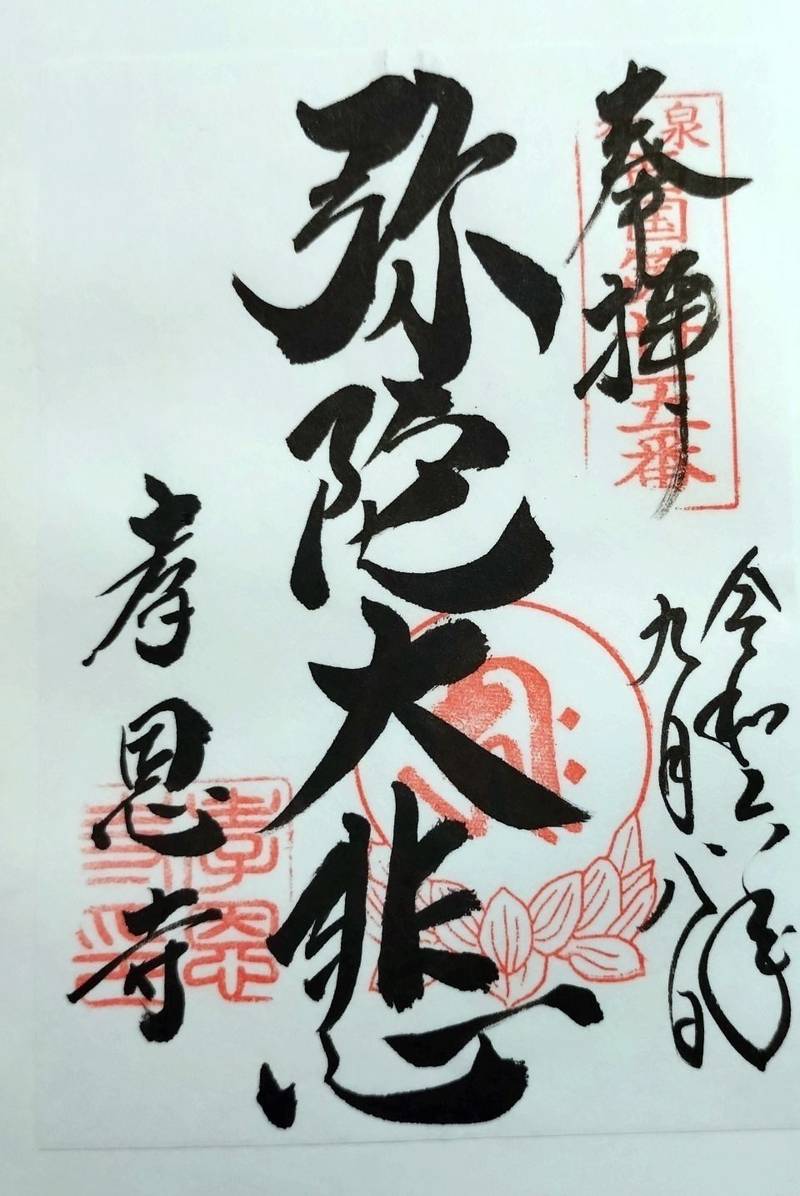 奉拝
泉
西国
五番
令和六年
九月八日
弥陀大悲
孝恩寺
孝恩
寺印